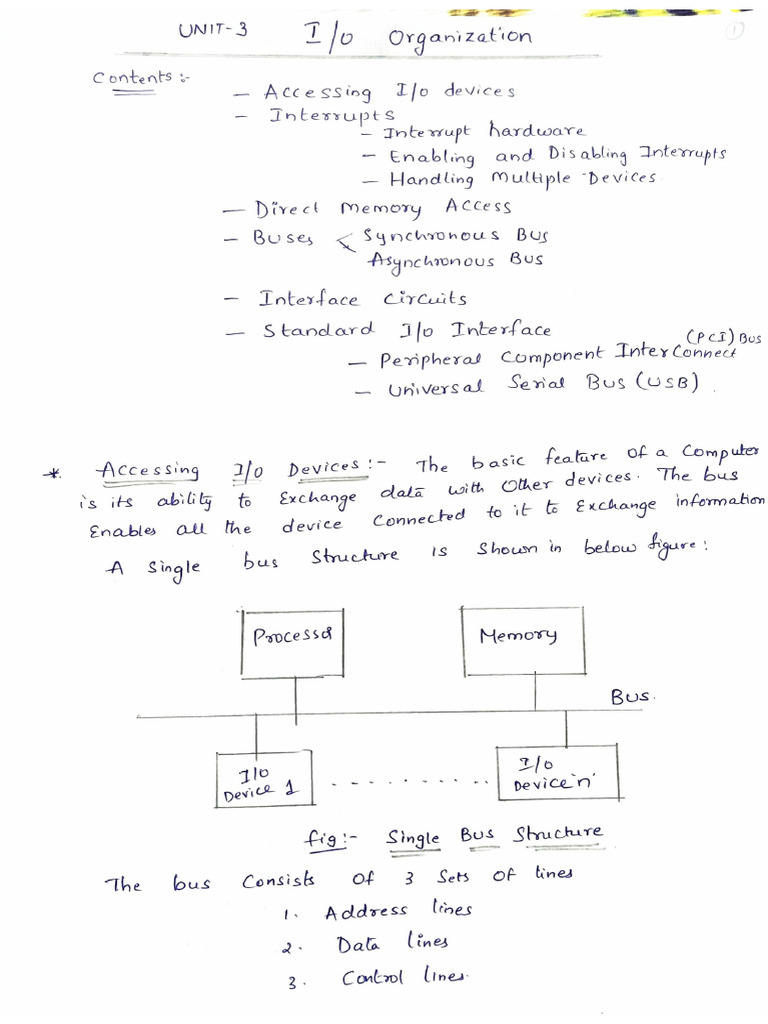 UNIT-3 I/o Organization 1
Contents :-
— Accessing I/o devices
— Interrupts
— Interrupt hardware
— Enabling and Disabling Interrupts
— Handling Multiple Devices.
— Direct Memory Access
— Buses < Synchronous Bus
Asynchronous Bus
— Interface circuits
— Standard I/o Interface
(PCI) Bus
— Peripheral Component InterConnect
— Universal Serial Bus (USB).
*. Accessing I/o Devices :- The basic feature of a Computer
is its ability to Exchange data with other devices. The bus
Enables all the device connected to it to Exchange information
A Single bus Structure is shown in below figure :
Processor
Memory
Bus.
I/o
Device 1
..........
I/o
Device 'n'
fig :- Single Bus Structure
The bus Consists of 3 Sets of lines
1. Address lines
2. Data lines
3. Control lines.